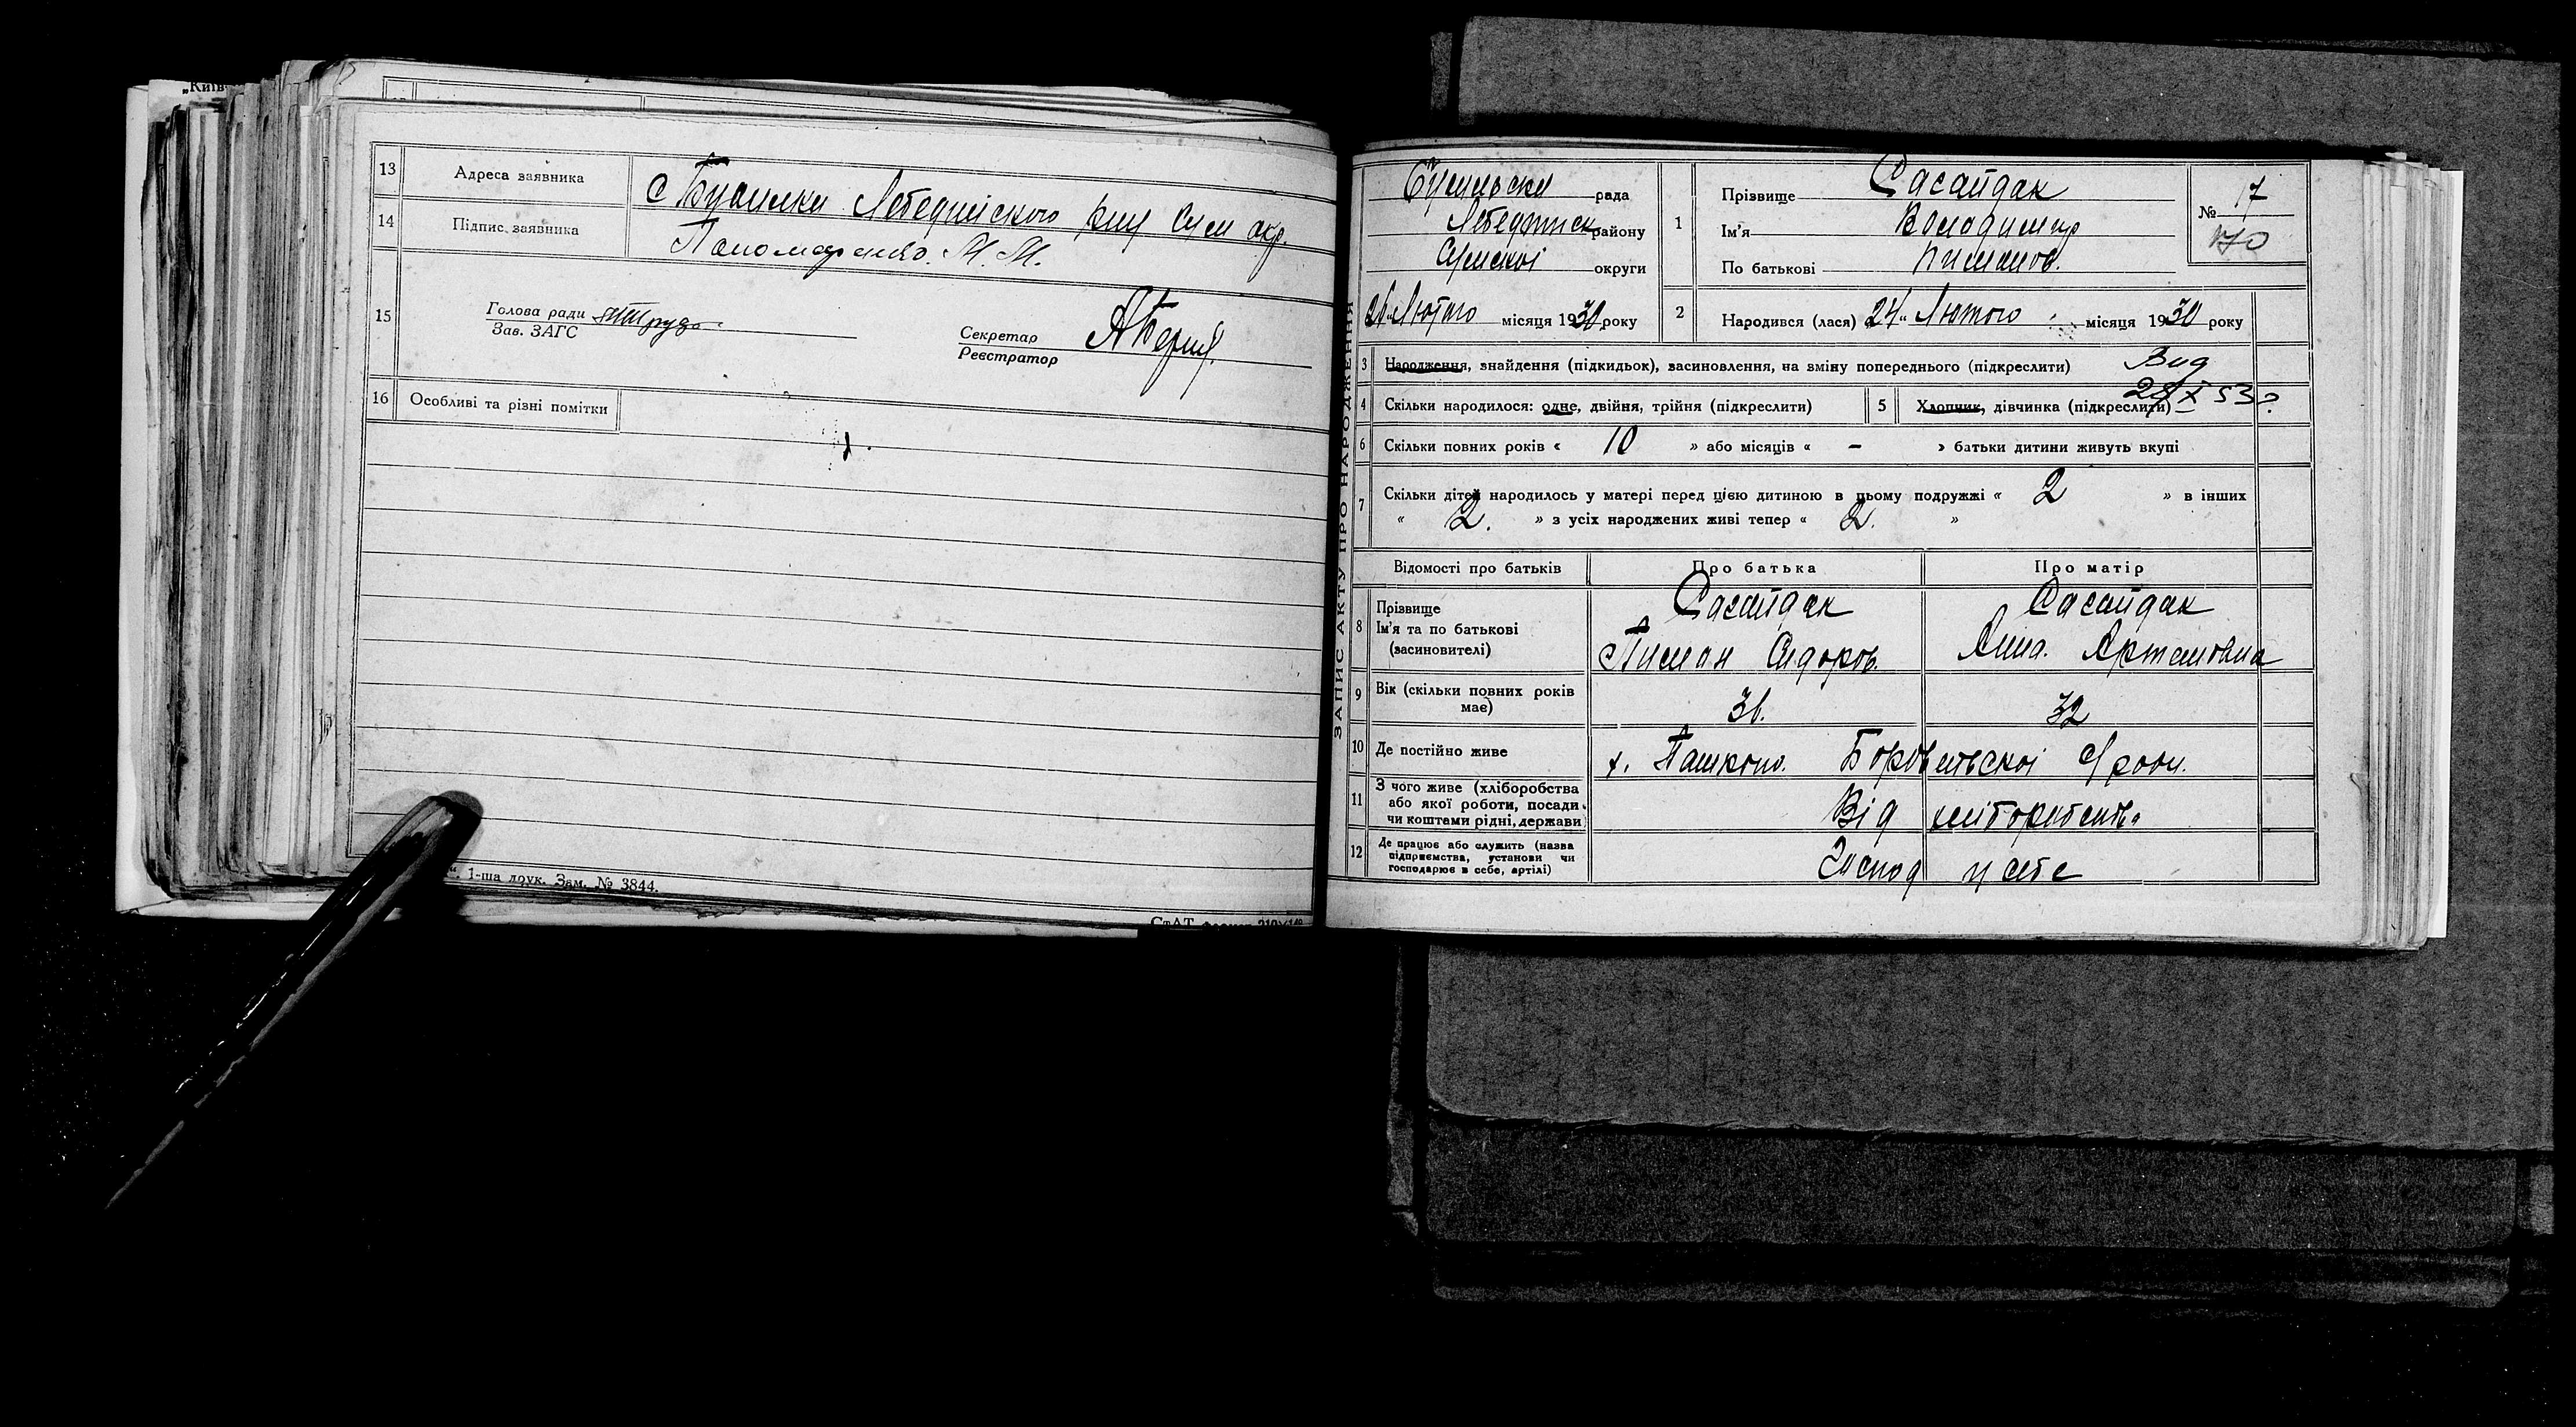 „Київ-
13 Адреса заявника с Бишкинь Лебединського
14 Підпис заявника Пономаренко. М. М.
15 Голова ради
Зав. ЗАГС
Секретар
Реєстратор
16 Особливі та різні помітки
“. 1-ша друк. Зам. № 3844.
ЗАПИС АКТУ ПРО НАРОДЖЕННЯ
рада
Лебединськ району
Сумської округи
26 Лютого місяця 1930 року
1 Прізвище Сасайдак
Ім’я Володимир
По батькові Пимонов.
№ 17
170
2 Народився (лася) 24 „Лютого місяця 1930 року
3 Народження, знайдення (підкидьок), засиновлення, на зміну попереднього (підкреслити) Вид
4 Скільки народилося: одне, двійня, трійня (підкреслити) 5 Хлопчик, дівчинка (підкреслити)
6 Скільки повних років « 10 » або місяців « – » батьки дитини живуть вкупі
7 Скільки дітей народилось у матері перед цією дитиною в цьому подружжі « 2 » в інших
« 2. » з усіх народжених живі тепер « 2. »
Відомості про батьків Про батька Про матір
8 Прізвище Сасайдак Сасайдак
Ім’я та по батькові
(засиновителі) Пиман Сидоров. Анна. Артемовна
9 Вік (скільки повних років
має) 36. 32
10 Де постійно живе х.
11 З чого живе (хліборобства
або якої роботи, посади
чи коштами рідні, держави) Від хліборобства
12 Де працює або служить (назва
підприємства, установи чи
господарює в себе, артілі) Господ у себе